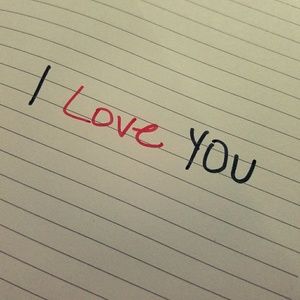 I Love You